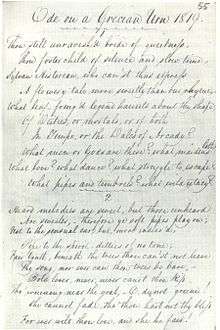 55
Ode on a Grecian Urn 1819.
Thou still unravish'd bride of quietness,
Thou foster child of silence and slow time,
Sylvan Historian, who can'st thus express
A flowery tale more sweetly than our rhyme,
What leaf-fring'd legend haunts about thy shape
Of Deities, or mortals, or of both
In Tempe, or the Dales of Arcady?
What men or Gods are these? what maidens loth
What love? what dance? what struggle to escape
What pipes and timbrels? what wild extacy?
2
Heard melodies are sweet, but those unheard
Are sweeter; therefore ye soft pipes play on;
Not to the sensual ear, but, more endear'd
Pipe to the spirit, ditties of no tone;
Fair Youth, beneath the trees thou can'st not leave
Thy song, nor ever can those trees be bare,
Bold lover, never, never can'st thou kiss
Tho' winning near the goal O do not grieve!
She cannot fade, tho' thou hast not thy bliss
For ever wilt thou love, and she be fair!